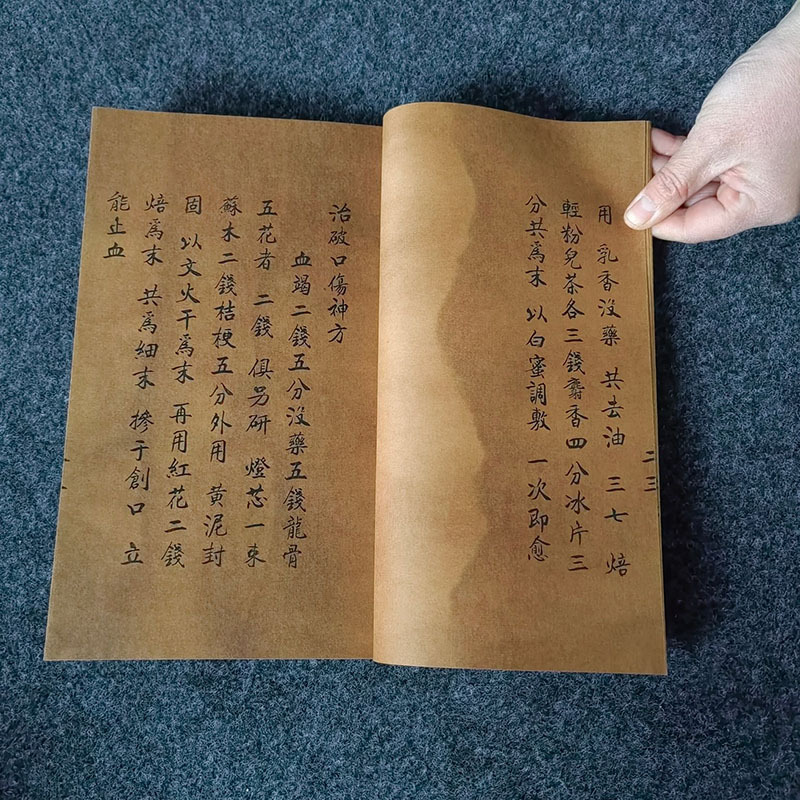 用 乳香没藥 共去油 三七 焙
輕粉兒茶各三錢麝香四分冰片三
分共爲末 以白蜜調敷 一次即愈
二三
治破口傷神方
血竭二錢五分没藥五錢龍骨
五花者 二錢 俱另研 燈芯一束
蘇木二錢桔梗五分外用 黄泥封
固 以文火干爲末 再用紅花二錢
焙爲末 共爲細末 摻于創口 立
能止血